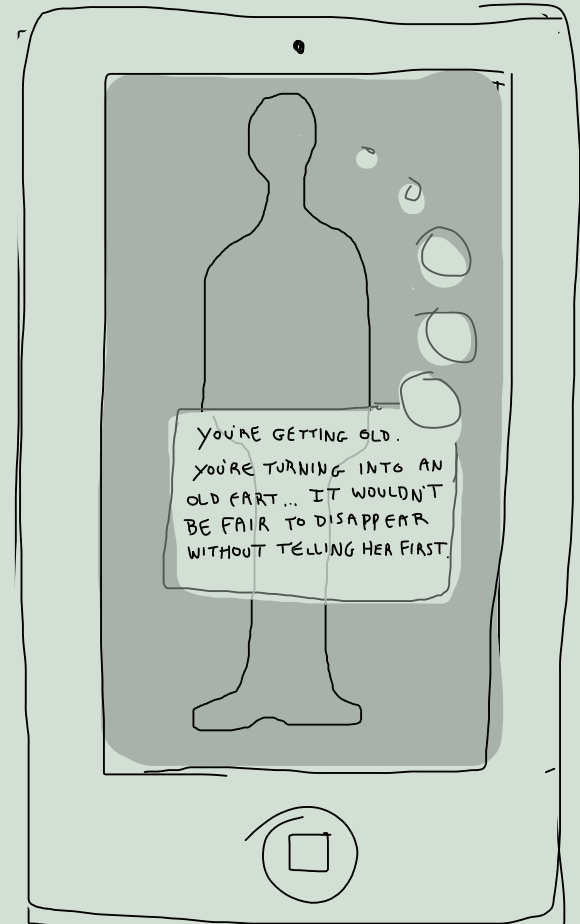 YOU'RE GETTING OLD.
YOU'RE TURNING INTO AN
OLD FART... IT WOULDN'T
BE FAIR TO DISAPPEAR
WITHOUT TELLING HER FIRST.